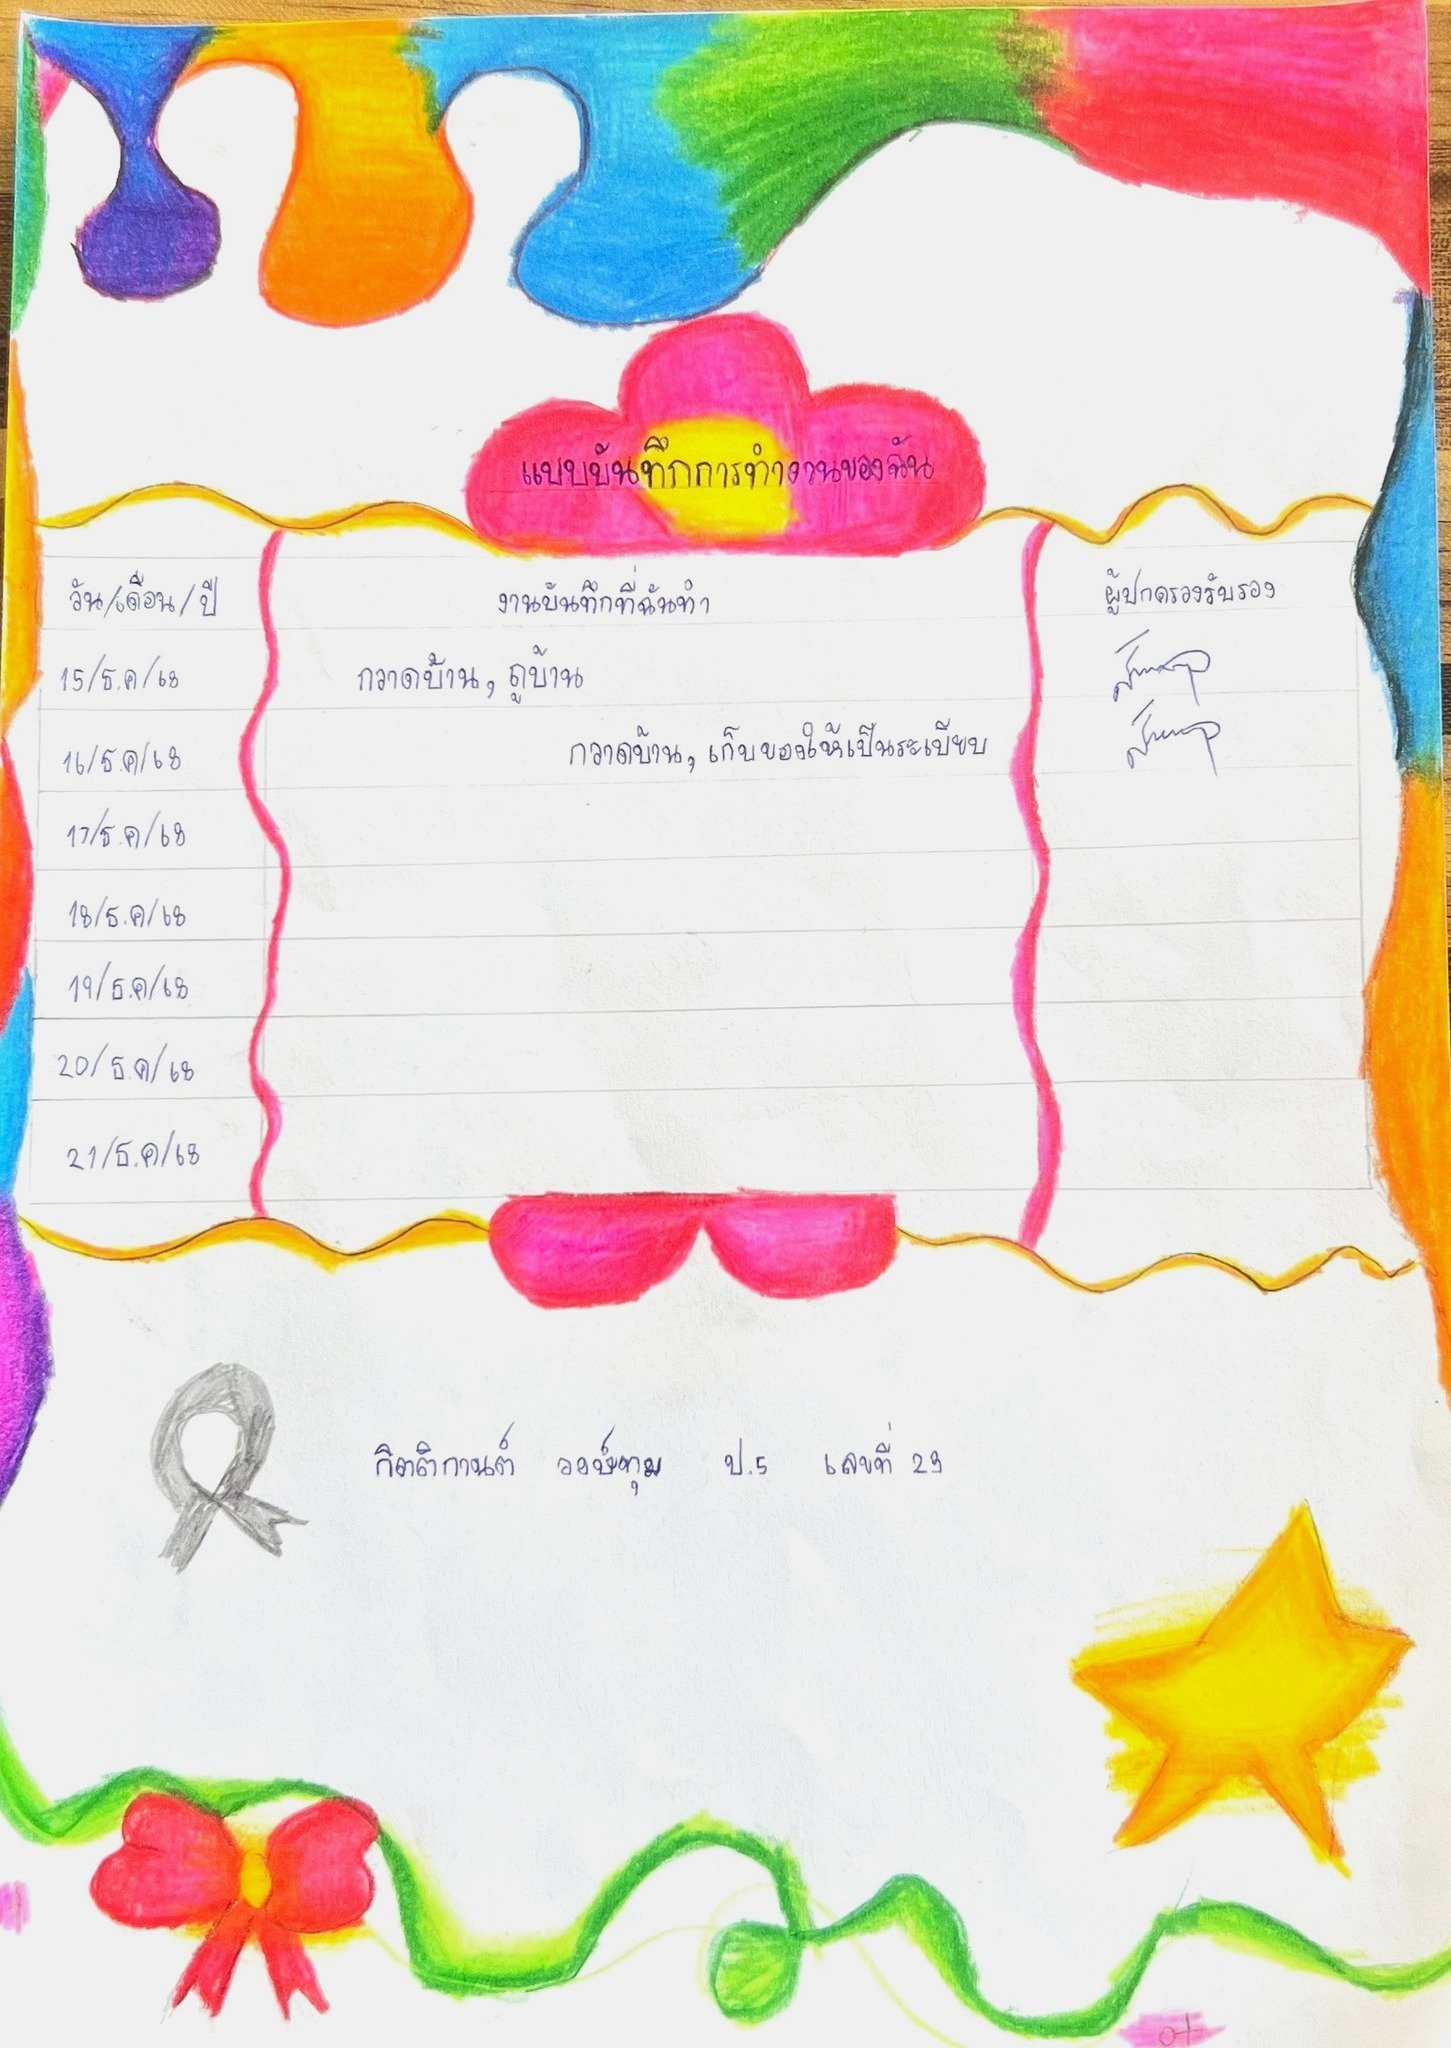 แบบบันทึกการทำงานของฉัน
วัน/เดือน/ปี งานบันทึกที่ฉันทำ ผู้ปกครองรับรอง
15/ธ.ค/68 กวาดบ้าน, ถูบ้าน
16/ธ.ค/68 กวาดบ้าน, เก็บของให้เป็นระเบียบ
17/ธ.ค/68
18/ธ.ค/68
19/ธ.ค/68
20/ธ.ค/68
21/ธ.ค/68
กิตติกานต์ วงษ์ทุม ป.5 เลขที่ 23